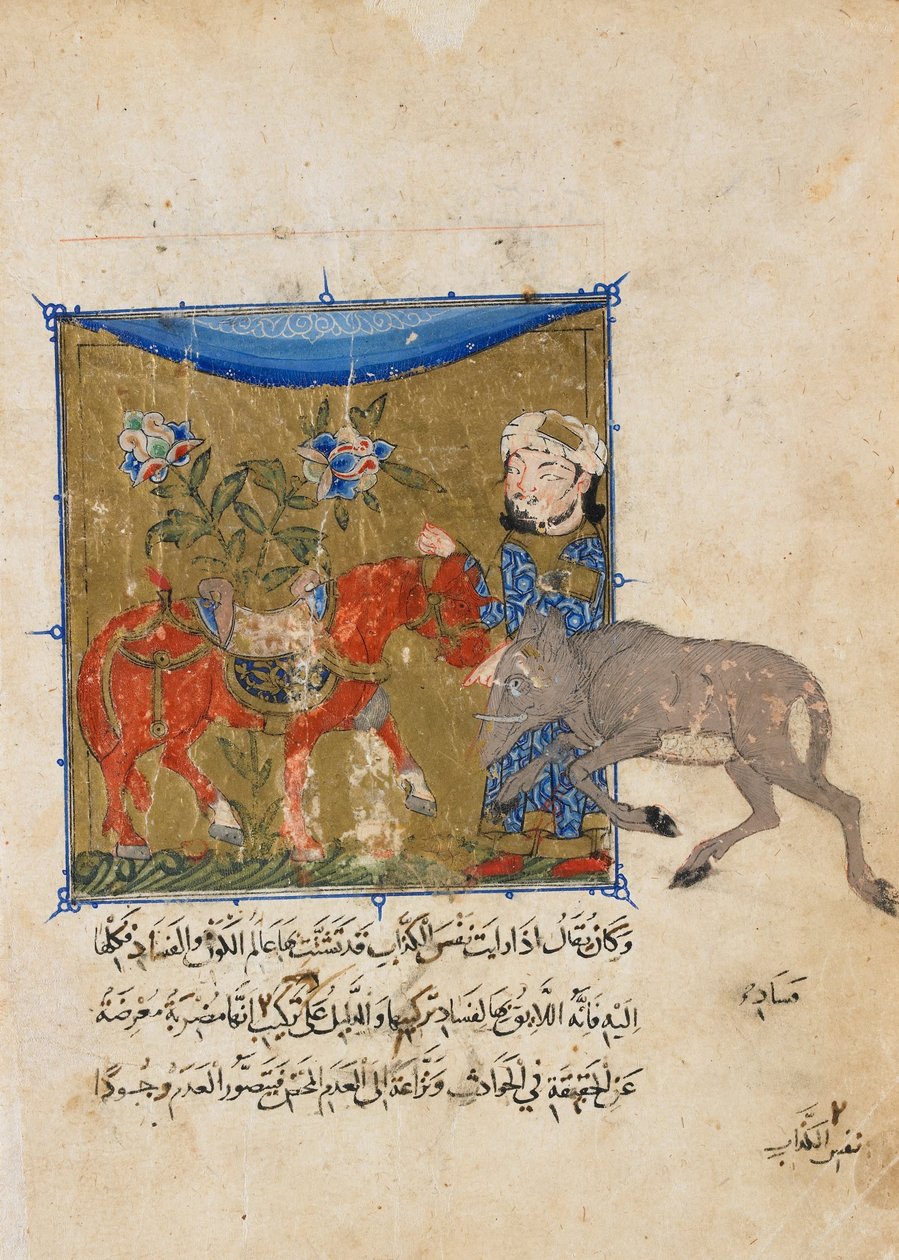 وَكَانَ يُقَالُ اِذَا رَايتَ نَفْسَ الْكَذَّابِ قَد تَشَبَّثَ بهَا عَالَمُ الكَوْنِ وَالفَسَادِ فَكِلْهَا
اِلَيْهِ فَاِنَّهُ اللَّايِقُ بهَا لِفَسَادِ تَرْكِيبِهَا وَالدَّلِيلُ عَلَى تَرْكِيبِ اَنَّهَا مُضْرِبَةٌ مُعْرِضَةٌ
عَنِ الْحَقِيقَةِ فِي الْحَوَادِثِ وَنَزَّاعَةٌ اِلَى الْعَدَمِ الْمَحْضِ فَيَتَصَوَّرُ الْعَدَمَ وُجُودًا
فساد
نفس الكَذَّابِ